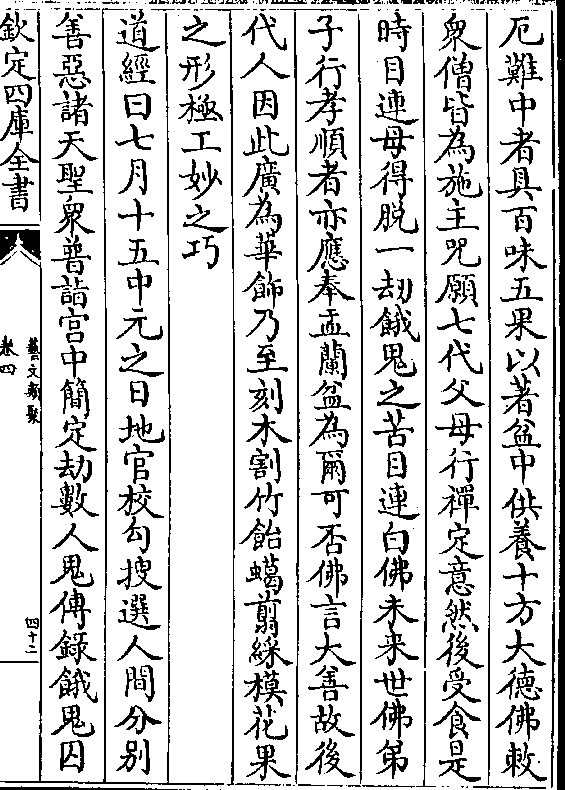 厄難中者具百味五果以著盆中供養十方大德佛敕
衆僧皆為施主咒願七代父母行禪定意然後受食是
時目連母得脱一刼餓鬼之苦目連白佛未来世佛弟
子行孝順者亦應奉盂蘭盆為爾可否佛言大善故後
代人因此廣為華飾乃至刻木割竹飴蠟剪綵模花果
之形極工妙之巧
道經曰七月十五中元之日地官校勾搜選人間分别
善惡諸天聖衆普詣宫中簡定劫數人鬼傳録餓鬼囚
欽定四庫全書
藝文類聚
卷四
四十二